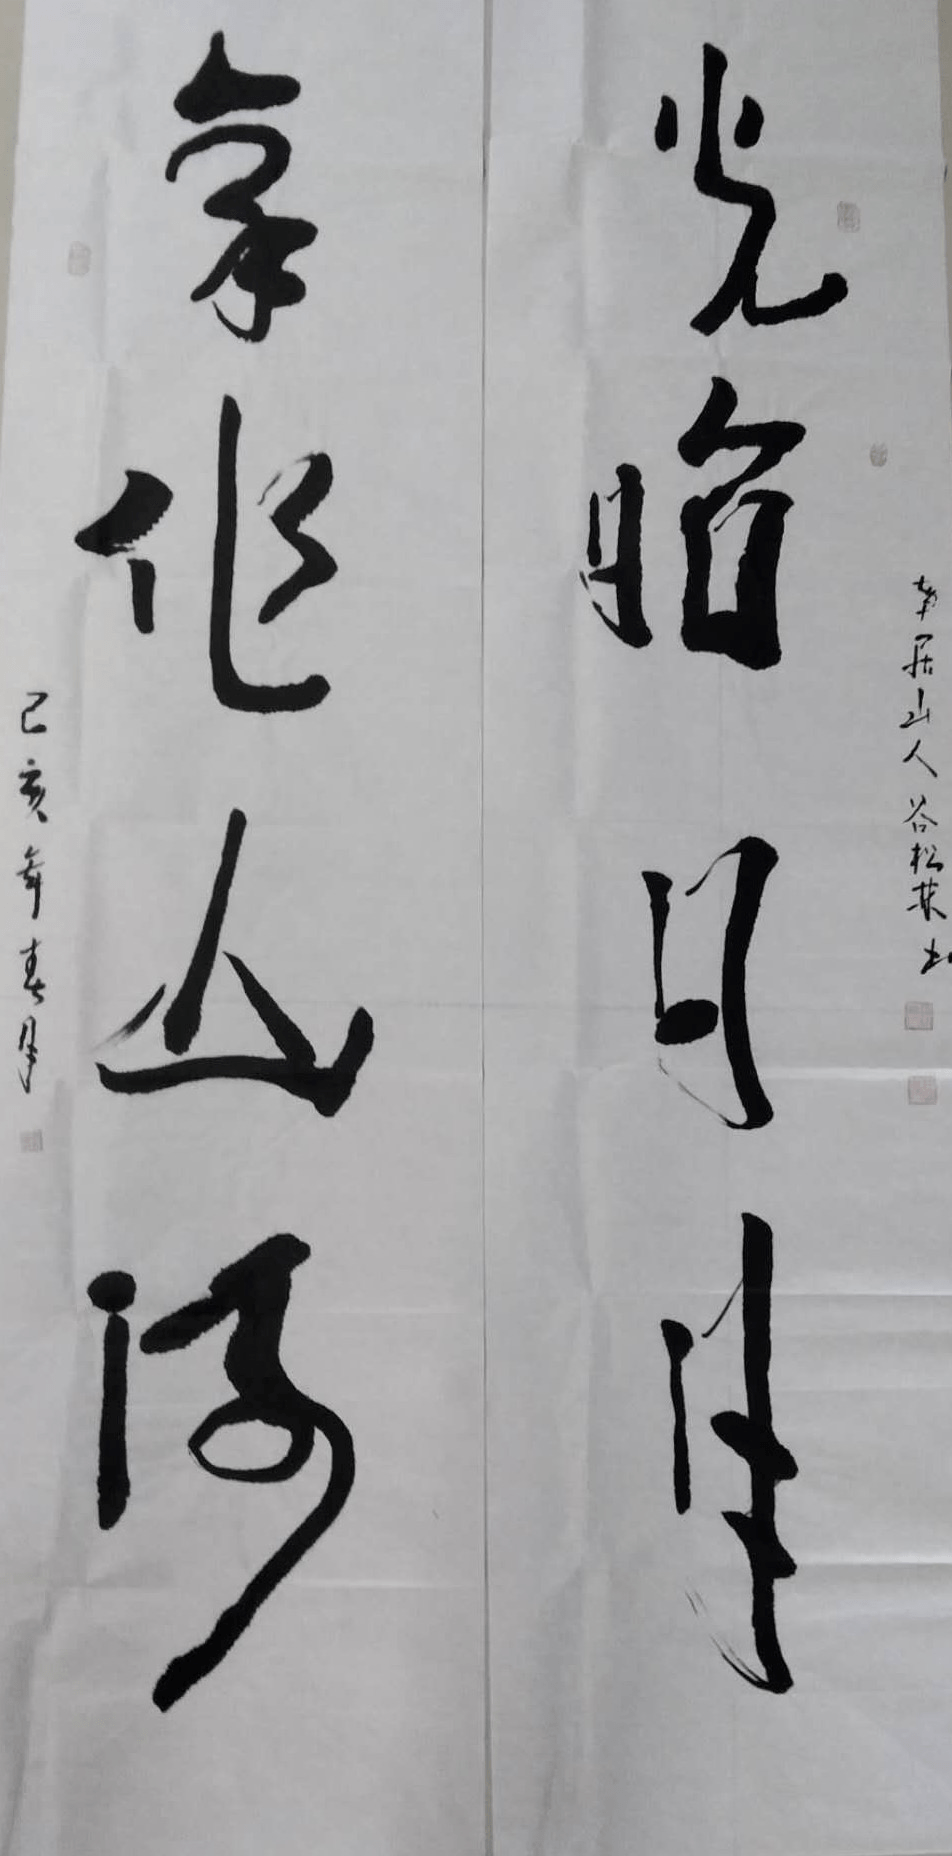 光昭日月
居山人谷松林书
氣作山河
己亥年春月